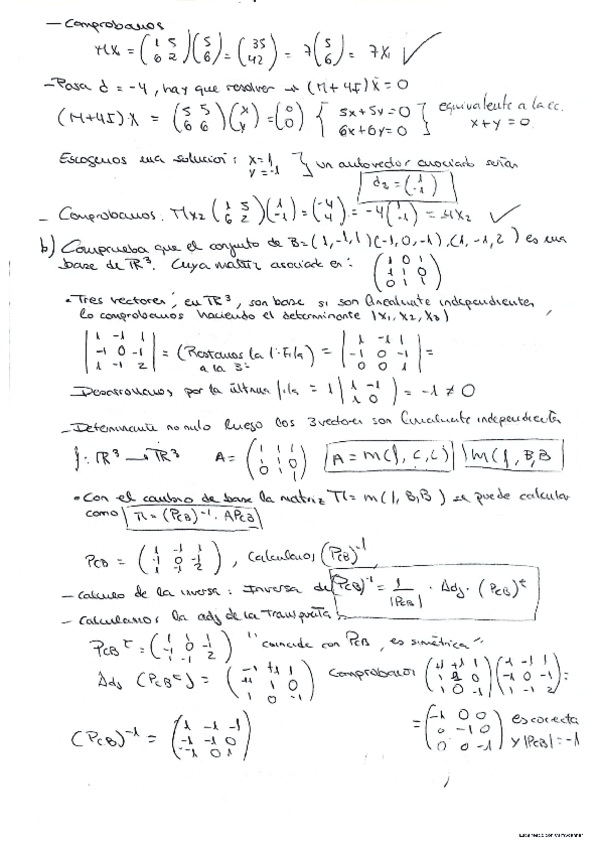 - Comprobamos
MX = (1 5; 6 2)(5; 6) = (35; 42) = 7(5; 6) = 7X1 ✓
- Para d = -4, hay que resolver → (M+4I)X = 0
(M+4I)·X = (5 5; 6 6)(x; y) = (0; 0) { 5x+5y=0; 6x+6y=0 } equivalente a la ec. x+y=0
Escogemos una solución: x=1, y=-1 } un autovector asociado sería
d2 = (1; -1)
- Comprobamos. MX2 (1 5; 6 2)(1; -1) = (-4; 4) = -4(1; -1) = -4X2 ✓
b) Comprueba que el conjunto de B=(1,-1,1)(-1,0,-1),(1,-1,2) es una
base de R³. Cuya matriz asociada es: (1 0 1; 1 1 0; 0 1 1)
• Tres vectores, en R³, son base si son linealmente independientes,
lo comprobamos haciendo el determinante |x1, x2, x3|
|1 -1 1; -1 0 -1; 1 -1 2| = (Restamos la 1ª Fila a la 3ª) = |1 -1 1; -1 0 -1; 0 0 1| =
Desarrollamos por la última fila = 1 |1 -1; 1 0| = -1 ≠ 0
- Determinante no nulo luego los 3 vectores son linealmente independientes
f: R³ → R³ A = (1 1 1; 1 1; 0 1 1) A = m(f, C, C) M(f, B, B
• Con el cambio de base la matriz M = m(f, B, B) se puede calcular
como M = (PCB)⁻¹ · APCB
PCB = (1 -1 1; -1 0 -1; 1 -1 2), calculamos (PCB)⁻¹
- calculo de la inversa: Inversa de (PCB)⁻¹ = 1/|PCB| · Adj · (PCB)ᵗ
- calculamos la adj de la transpuesta
PCBᵗ = (1 -1 1; -1 0 -1; 1 -1 2) "coincide con PCB, es simétrica"
Adj (PCBᵗ) = (-1 +1 1; +1 1 0; 1 0 -1) comprobamos (-1 +1 1; +1 1 0; 1 0 -1)(1 -1 1; -1 0 -1; 1 -1 2) =
(PCB)⁻¹ = (1 -1 -1; -1 -1 0; -1 0 1) = (-1 0 0; 0 -1 0; 0 0 -1) es correcta y |PCB| = -1